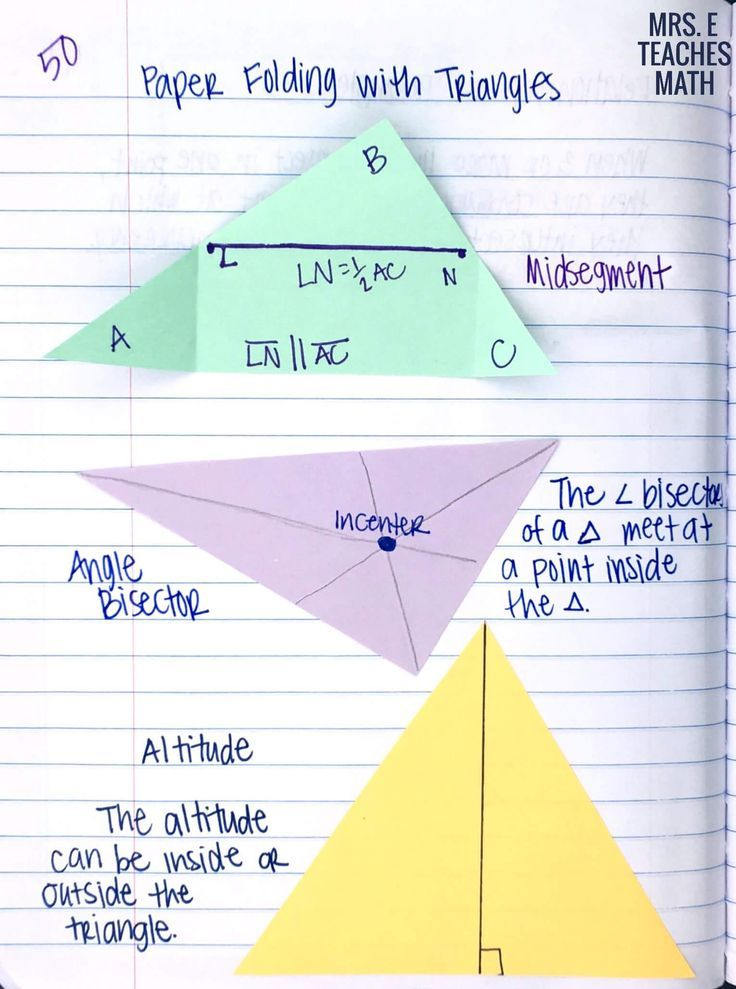 MRS. E
TEACHES
MATH
50
Paper Folding with Triangles
B
L
LN=½AC
N
Midsegment
A
L̅N̅ || A̅C̅
C
Incenter
The ∠ bisector
of a △ meet at
a point inside
the △.
Angle
Bisector
Altitude
The altitude
can be inside or
outside the
triangle.